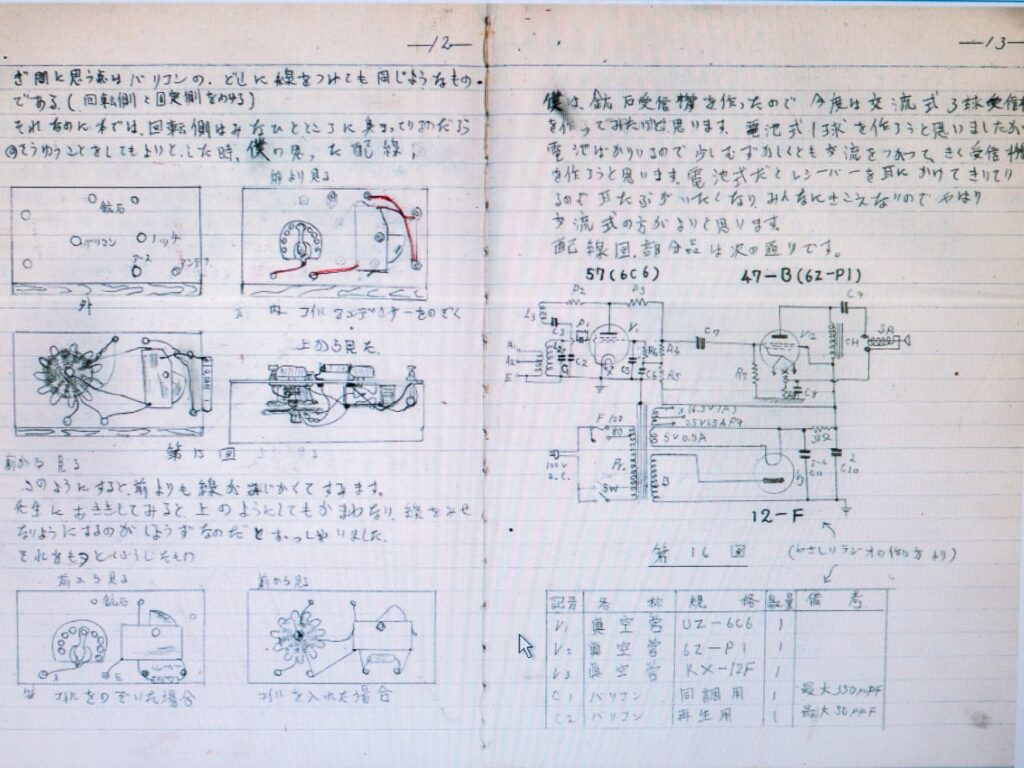 —12—
ぎ問に思う点はバリコンの、どしに線をつけても同じようなもの
である.(回転側と固定側をわける)
それなのに本では、回転側はみなひとところに
そうゆうことをしてもよいとした時、僕の思った配線、
前より見る
鉱石
バリコン
ノッチ
アース
アンテナ
外
内 コイル
をのぞく
上から見た
第15図
前から見る
このようにすると、前よりも線がみじかくてすみます。
先生におききしてみると上のようにしてもかまわない、線をみせ
ないようにするのがじょうずなのだとおっしゃいました.
それをもっとくふうしたもの
前から見る
前から見る
鉱石
コイルをのぞいた場合
コイルを入れた場合
—13—
僕は、鉱石受信機を作ったので今度は交流式3球受信機
を作ってみたいと思います。電池式1球を作ろうと思いましたが
電池ばかりいるので少しむずかしくとも交流をつかって、きく受信機
を作ろうと思います.電池式だとレシーバーを耳にかけてきいて
るので耳たぶがいたくなり、みんなにきこえないのでやはり
交流式の方がよいと思います。
配線図、部分品は次の通りです。
57(6C6)
47-B(6Z-P1)
R2
R3
C4
L3
C3
R1
V1
C7
V2
CH
SP
A1
A2
E
C2
C5
C6
R4
R5
R7
C8
X(6.3V1A)
2.5V1.5A
5V0.5A
F
100
100V
A.C.
Pr.
SW
B
C11
C10
12-F
第16図
(やさしいラジオの作り方より)
記号 名称 規格 数量 備考
V1 真空管 UZ-6C6 1
V2 真空管 6Z-P1 1
V3 真空管 KX-12F 1
C1 バリコン 同調用 1 最大350μμF
C2 バリコン 再生用 1 最大50μμF